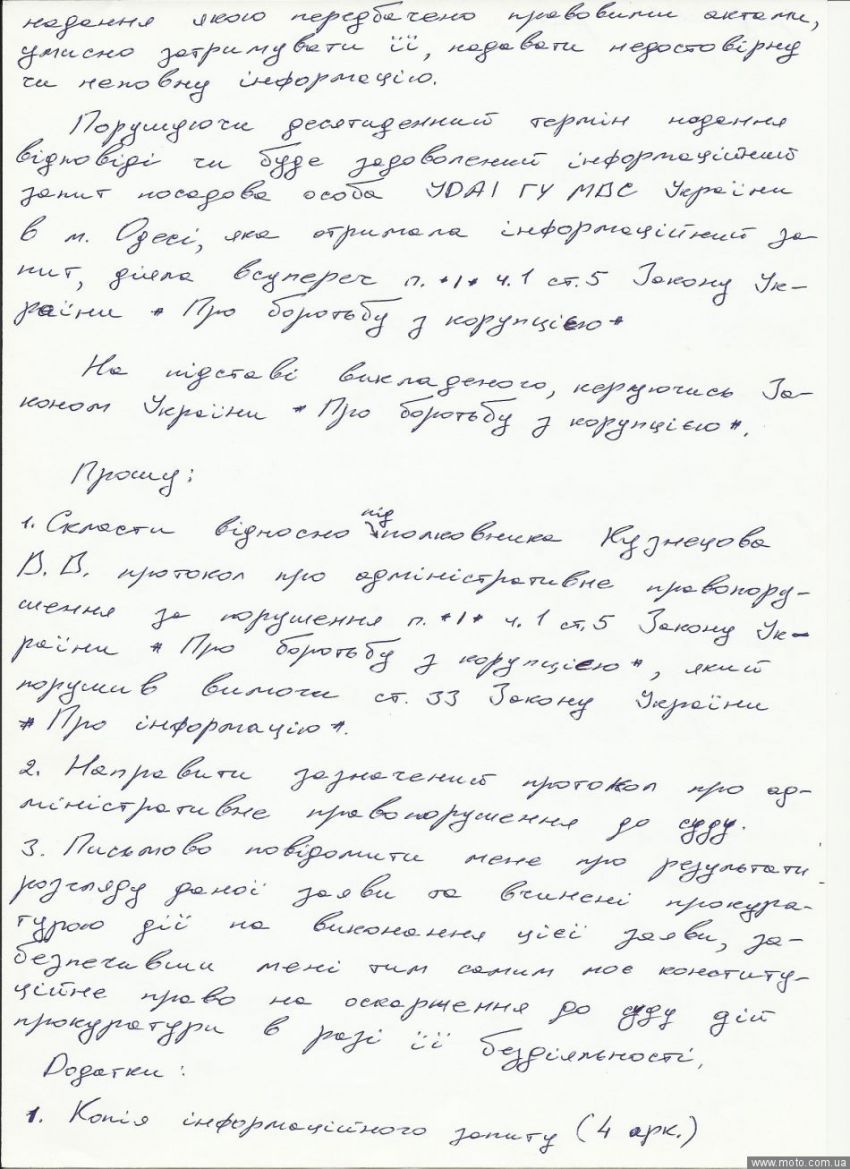 надання якою передбачено правовими актами,
умисно затримувати її, надавати недостовірну
чи неповну інформацію.
Порушуючи десятиденний термін надання
відповіді чи буде задоволений інформаційний
запит посадова особа УДАІ ГУ МВС України
в м. Одесі, яка отримала інформаційний за-
пит, діяла всупереч п. "1" ч.1 ст.5 Закону Ук-
раїни "Про боротьбу з корупцією"
На підставі викладеного, керуючись За-
коном України "Про боротьбу з корупцією".
Прошу:
1. Скласти відносно підполковника Кузнецова
В. В. протокол про адміністративне правопору-
шення за порушення п. "1" ч.1 ст.5 Закону Ук-
раїни "Про боротьбу з корупцією", який
порушив вимоги ст. 33 Закону України
"Про інформацію".
2. Направити зазначений протокол про ад-
міністративне правопорушення до суду.
3. Письмово повідомити мене про результати
розгляду даної заяви та вчинені прокура-
турою дії на виконання цієї заяви, за-
безпечивши мені тим самим моє конститу-
ційне право на оскарження до суду дій
прокуратури в разі її бездіяльності.
Додатки:
1. Копія інформаційного запиту (4 арк.)
www.moto.com.ua